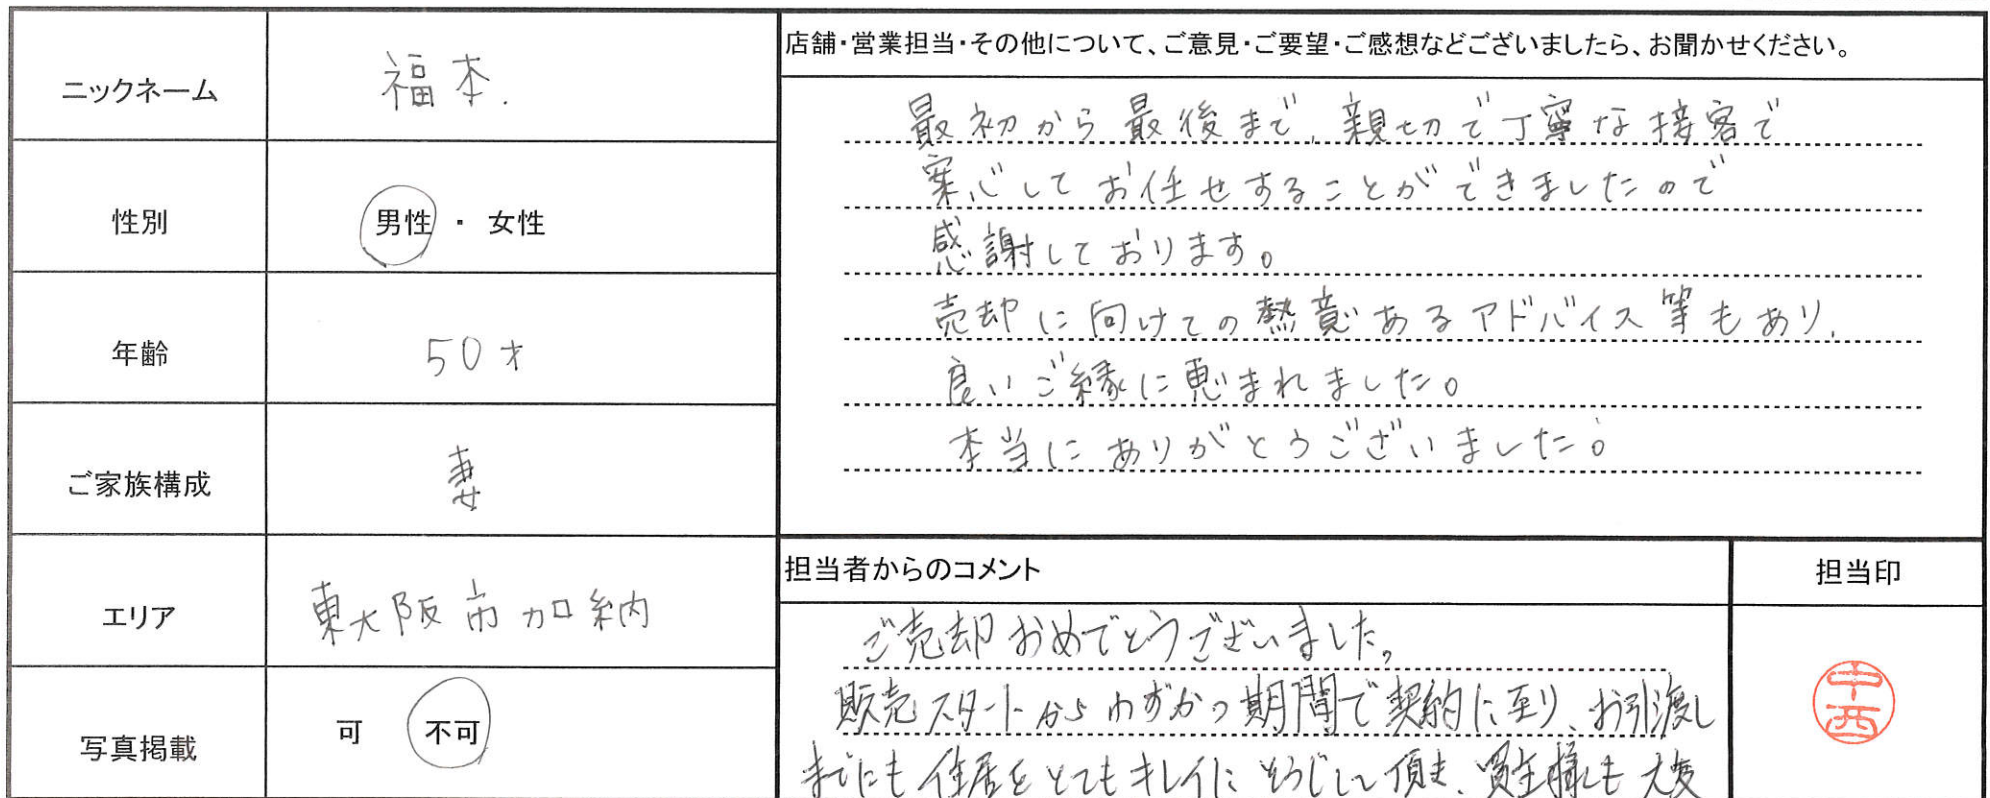 ニックネーム
福本.
性別
男性 ・ 女性
年齢
50才
ご家族構成
妻
エリア
東大阪市加納
写真掲載
可 不可
店舗・営業担当・その他について、ご意見・ご要望・ご感想などございましたら、お聞かせください。
最初から最後まで、親切で丁寧な接客で
案心してお任せすることができましたので
感謝しております。
売却に向けての熱意あるアドバイス等もあり、
良いご縁に恵まれました。
本当にありがとうございました。
担当者からのコメント
ご売却おめでとうございました。
販売スタートからわずかの期間で契約に至り、お引渡し
までにも住居をとてもキレイにそうじして頂き、買主様も大変
担当印
中西